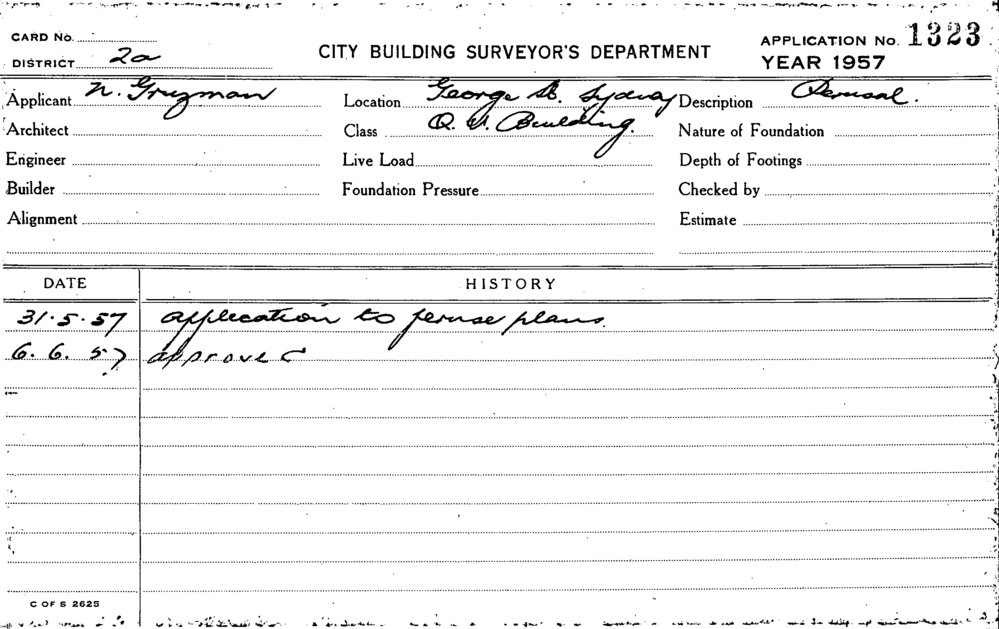 CARD No.
DISTRICT 2a
CITY BUILDING SURVEYOR'S DEPARTMENT
APPLICATION No. 1323
YEAR 1957
Applicant N. Gruzman Location George St. Sydney Description Perusal.
Architect Class Q. V. Building. Nature of Foundation
Engineer Live Load Depth of Footings
Builder Foundation Pressure Checked by
Alignment Estimate
DATE HISTORY
31.5.57 application to peruse plans.
6.6.57 approved
C OF S 2625